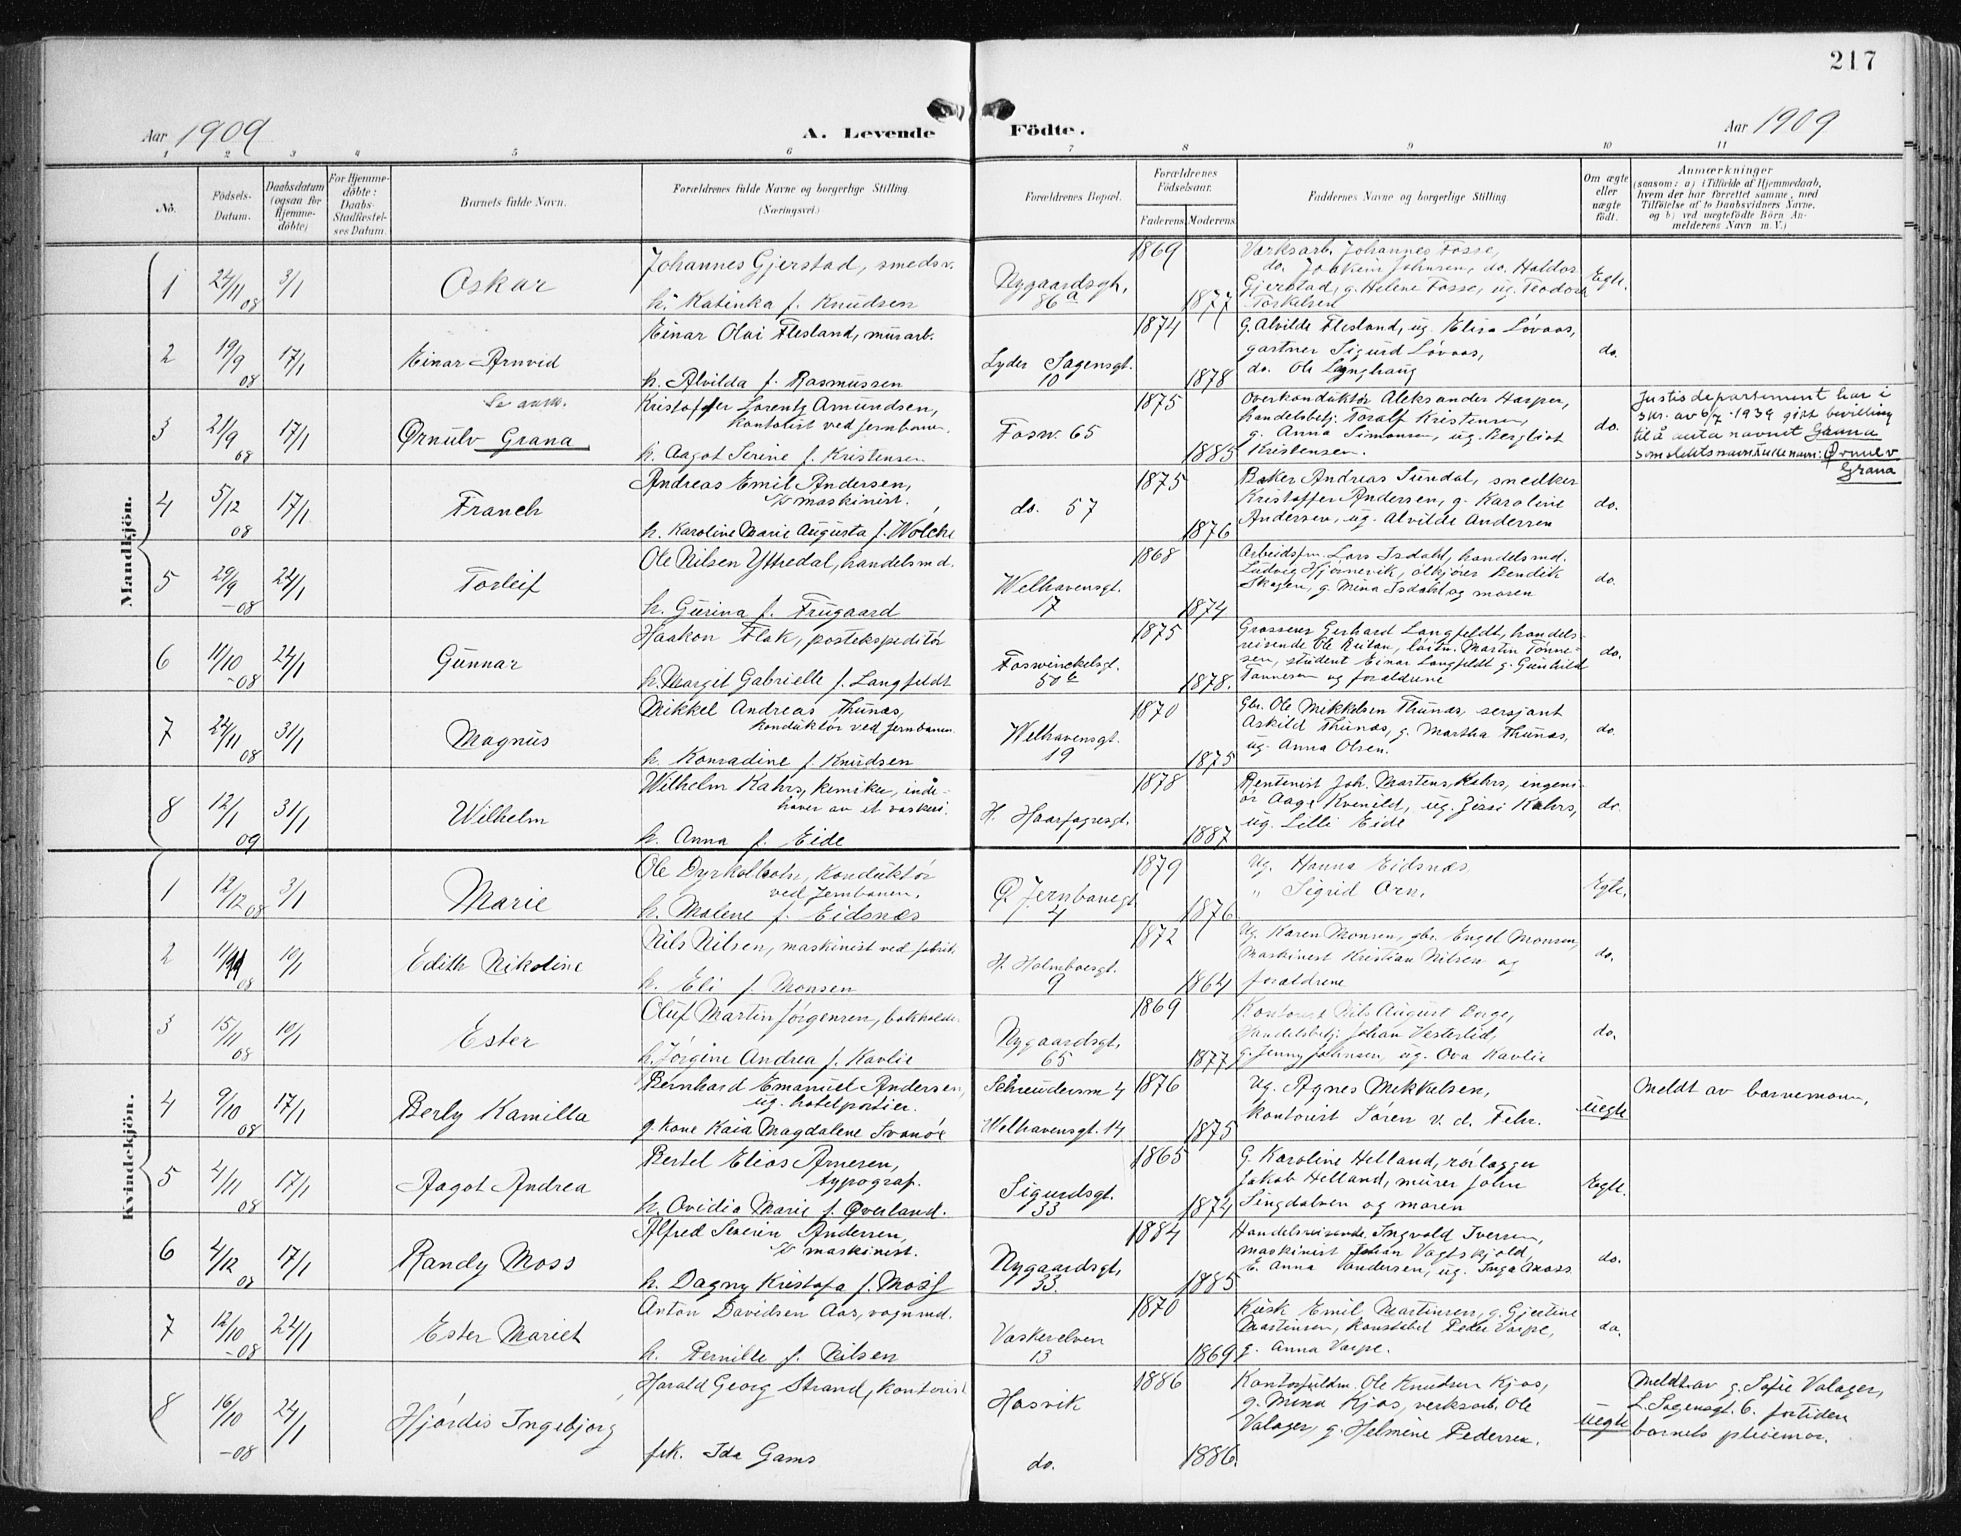 217
Aar 1909 A. Levende Födte. Aar 1909
1 2 3 4 5 6 7 8 9 10 11
No. Födsels-Datum. Daabsdatum (ogsaa for Hjemmedöbte) For Hjemmedöbte: Daabs-Stadfæstelses Datum. Barnets fulde Navn. Forældrenes fulde Navne og borgerlige Stilling (Næringsvei.) Forældrenes Bopæl. Forældrenes Födselsaar. Faderens Moderens Faddernes Navne og borgerlige Stilling Om ægte eller uægte födt. Anmærkninger (saasom: a) i Tilfælde af Hjemmedaab, hvem der har forrettet samme, med Tilföielse af to Daabsvidners Navne, og b) ved uægtefödte Börn Anmelderens Navn m. V.)
Mandkjön.
1 24/11 08 3/1 Oskar Johannes Gjerstad, smedsv. Nygaardsgt. 86a 1869 Verksarb. Johannes Fosse, Egte.
do. Joakim Johnsen, do. Haldor
h. Katinka f. Knudsen 1877 Gjerstad, g. Helene Fosse, ug. Teodora Torkelsen
2 19/9 08 17/1 Einar Arnvid Einar Olai Flesland, murarb. Lyder Sagensgt. 10 1874 G. Alvilde Flesland, ug. Elisa Lövaas, do.
gartner Sigurd Lövaas,
h. Alvilda f. Rasmussen 1878 do. Ole Lynghaug
Se anm.
3 21/9 08 17/1 Ørnulv Grana Kristoffer Lorentz Amundsen, Fosw. 65 1875 Overkonduktör Aleksander Harper, do. Justisdepartement har i
kontorist ved jernbanen handelsbetj. Toralf Kristensen, skr. av 6/7-1939 gitt bevilling
g. Anna Simonsen, ug. Bergliot til å anta navnet Grana
h. Aagot Serine f. Kristensen 1885 Kristensen. som slektsnavn. Fulde navn: Ørnulv
Grana
4 5/12 08 17/1 Franch Andreas Emil Andersen, do. 57 1875 Baker Andreas Sundal, smedker do.
maskinist. Kristoffer Andersen, g. Karoline
h. Karoline Marie Augusta f. Wolche 1876 Andersen, ug. Alvilde Andersen
5 29/9 -08 24/1 Torleif Ole Nilsen Yttredal, handelsmd. Welhavensgt. 17 1868 Arbeidsfm. Lars Isdahl, handelsmd. do.
Ludvig Hjörnevik, ölkjörer Bendik
h. Gurina f. Frugaard 1874 Skagen, g. Mina Isdahl og moren
6 11/10 -08 24/1 Gunnar Haakon Flak, postekspeditör Foswinckelsgt. 50b 1875 Grosserer Gerhard Langfeldt, handels- do.
reisende Ole Reitan, löitn. Martin Tönne-
sen, student Einar Langfeldt g. Gunhild
h. Margit Gabrielle f. Langfeldt 1878. Tönnesen og forældrene
7 24/11 08 31/1 Magnus Mikkel Andreas Thunæs, Welhavensgt. 19 1870 Gbr. Ole Mikkelsen Thunæs, sersjant do.
konduktör ved jernbanen. Askild Thunæs, g. Martha Thunæs,
h. Konradine f. Knudsen 1875 ug. Anna Olsen.
8 12/1 09 31/1 Wilhelm Wilhelm Kahrs, kemiker, inde- H. Haarfagresgt. 1 1878 Rentenist Joh. Martens Kahrs, ingeni- do.
haver av et vaskeri. ör Aage Kvenild, ug. Zissi Kahrs,
h. Anna f. Eide 1887 ug. Lilli Eide
Kvindekjön.
1 12/12 08 3/1 Marie Ole Dyrkolbotn, konduktör Ø. Jernbanegt. 4 1879 Ug. Hanna Eidsnæs Egte.
ved jernbanen. " Sigrid Orn.
h. Malene f. Eidsnæs 1876
2 11/11 08 10/1 Edith Nikoline Nils Nilsen, maskinist ved fabrik. H. Holmboesgt. 9 1872 Ug. Karen Monsen, gbr. Engel Monsen, do.
maskinist Kristian Nilsen og
h. Eli f. Monsen 1864 forældrene
3 15/11 08 10/1 Ester Oluf Martin Jörgensen, bokholder Nygaardsgt. 65 1869 Kontorist Nils August Berge, do.
Handelsbetj. Johan Vesterlid,
h. Jörgine Andrea f. Kavlie 1877 g. Jenny Johnsen, ug. Ova Kavlie
4 9/10 08 17/1 Berly Kamilla Bernhard Emanuel Andersen, Schreudersm 4 1876 Ug. Agnes Mikkelsen, uegte Meldt av barnemoren,
ug. hotelportier.
g. kone Kaia Magdalene Svanöe Welhavensgt. 14 1875 kontorist Sören v. d. Fehr.
5 4/11 08 17/1 Aagot Andrea Bertel Elias Arnesen, Sigurdsgt. 33 1865 G. Karoline Helland, rörlægger Egte.
typograf. Jakob Helland, murer John
h. Ovidia Marie f. Øverland. 1874 Singdalsen og moren
6 4/12 08 17/1 Randy Moss Alfred Severin Andersen, Nygaardsgt, 33. 1884 Handelsreisende Ingvald Iversen, do.
maskinist. maskinist Johan Vagtskjold,
h. Dagny Kristofa f. Moss 1885 E. Anna Andersen, ug. Inga Moss
7 12/10 -08 24/1 Ester Mariet Anton Davidsen Aas, vognmd. Vaskerelven 13 1870 Kusk Emil Martinsen, g. Gjertine do.
Martinsen, konstabel Peder Varpe,
h. Pernille f. Nilsen 1869 g. Anna Varpe.
8 16/10 -08 24/1 Hjördis Ingebjörg Harald Georg Strand, kontorist Hasvik 1886 Kontorfuldm. Ole Knudsen Kjos, uegte Meldt av g. Sofie Valager,
g. Mina Kjos, verksarb. Ole L. Sagensgt. 6. for tiden
Valager, g. Helmine Pedersen. barnets pleiemor.
frk. Ida Gams do. 1886.